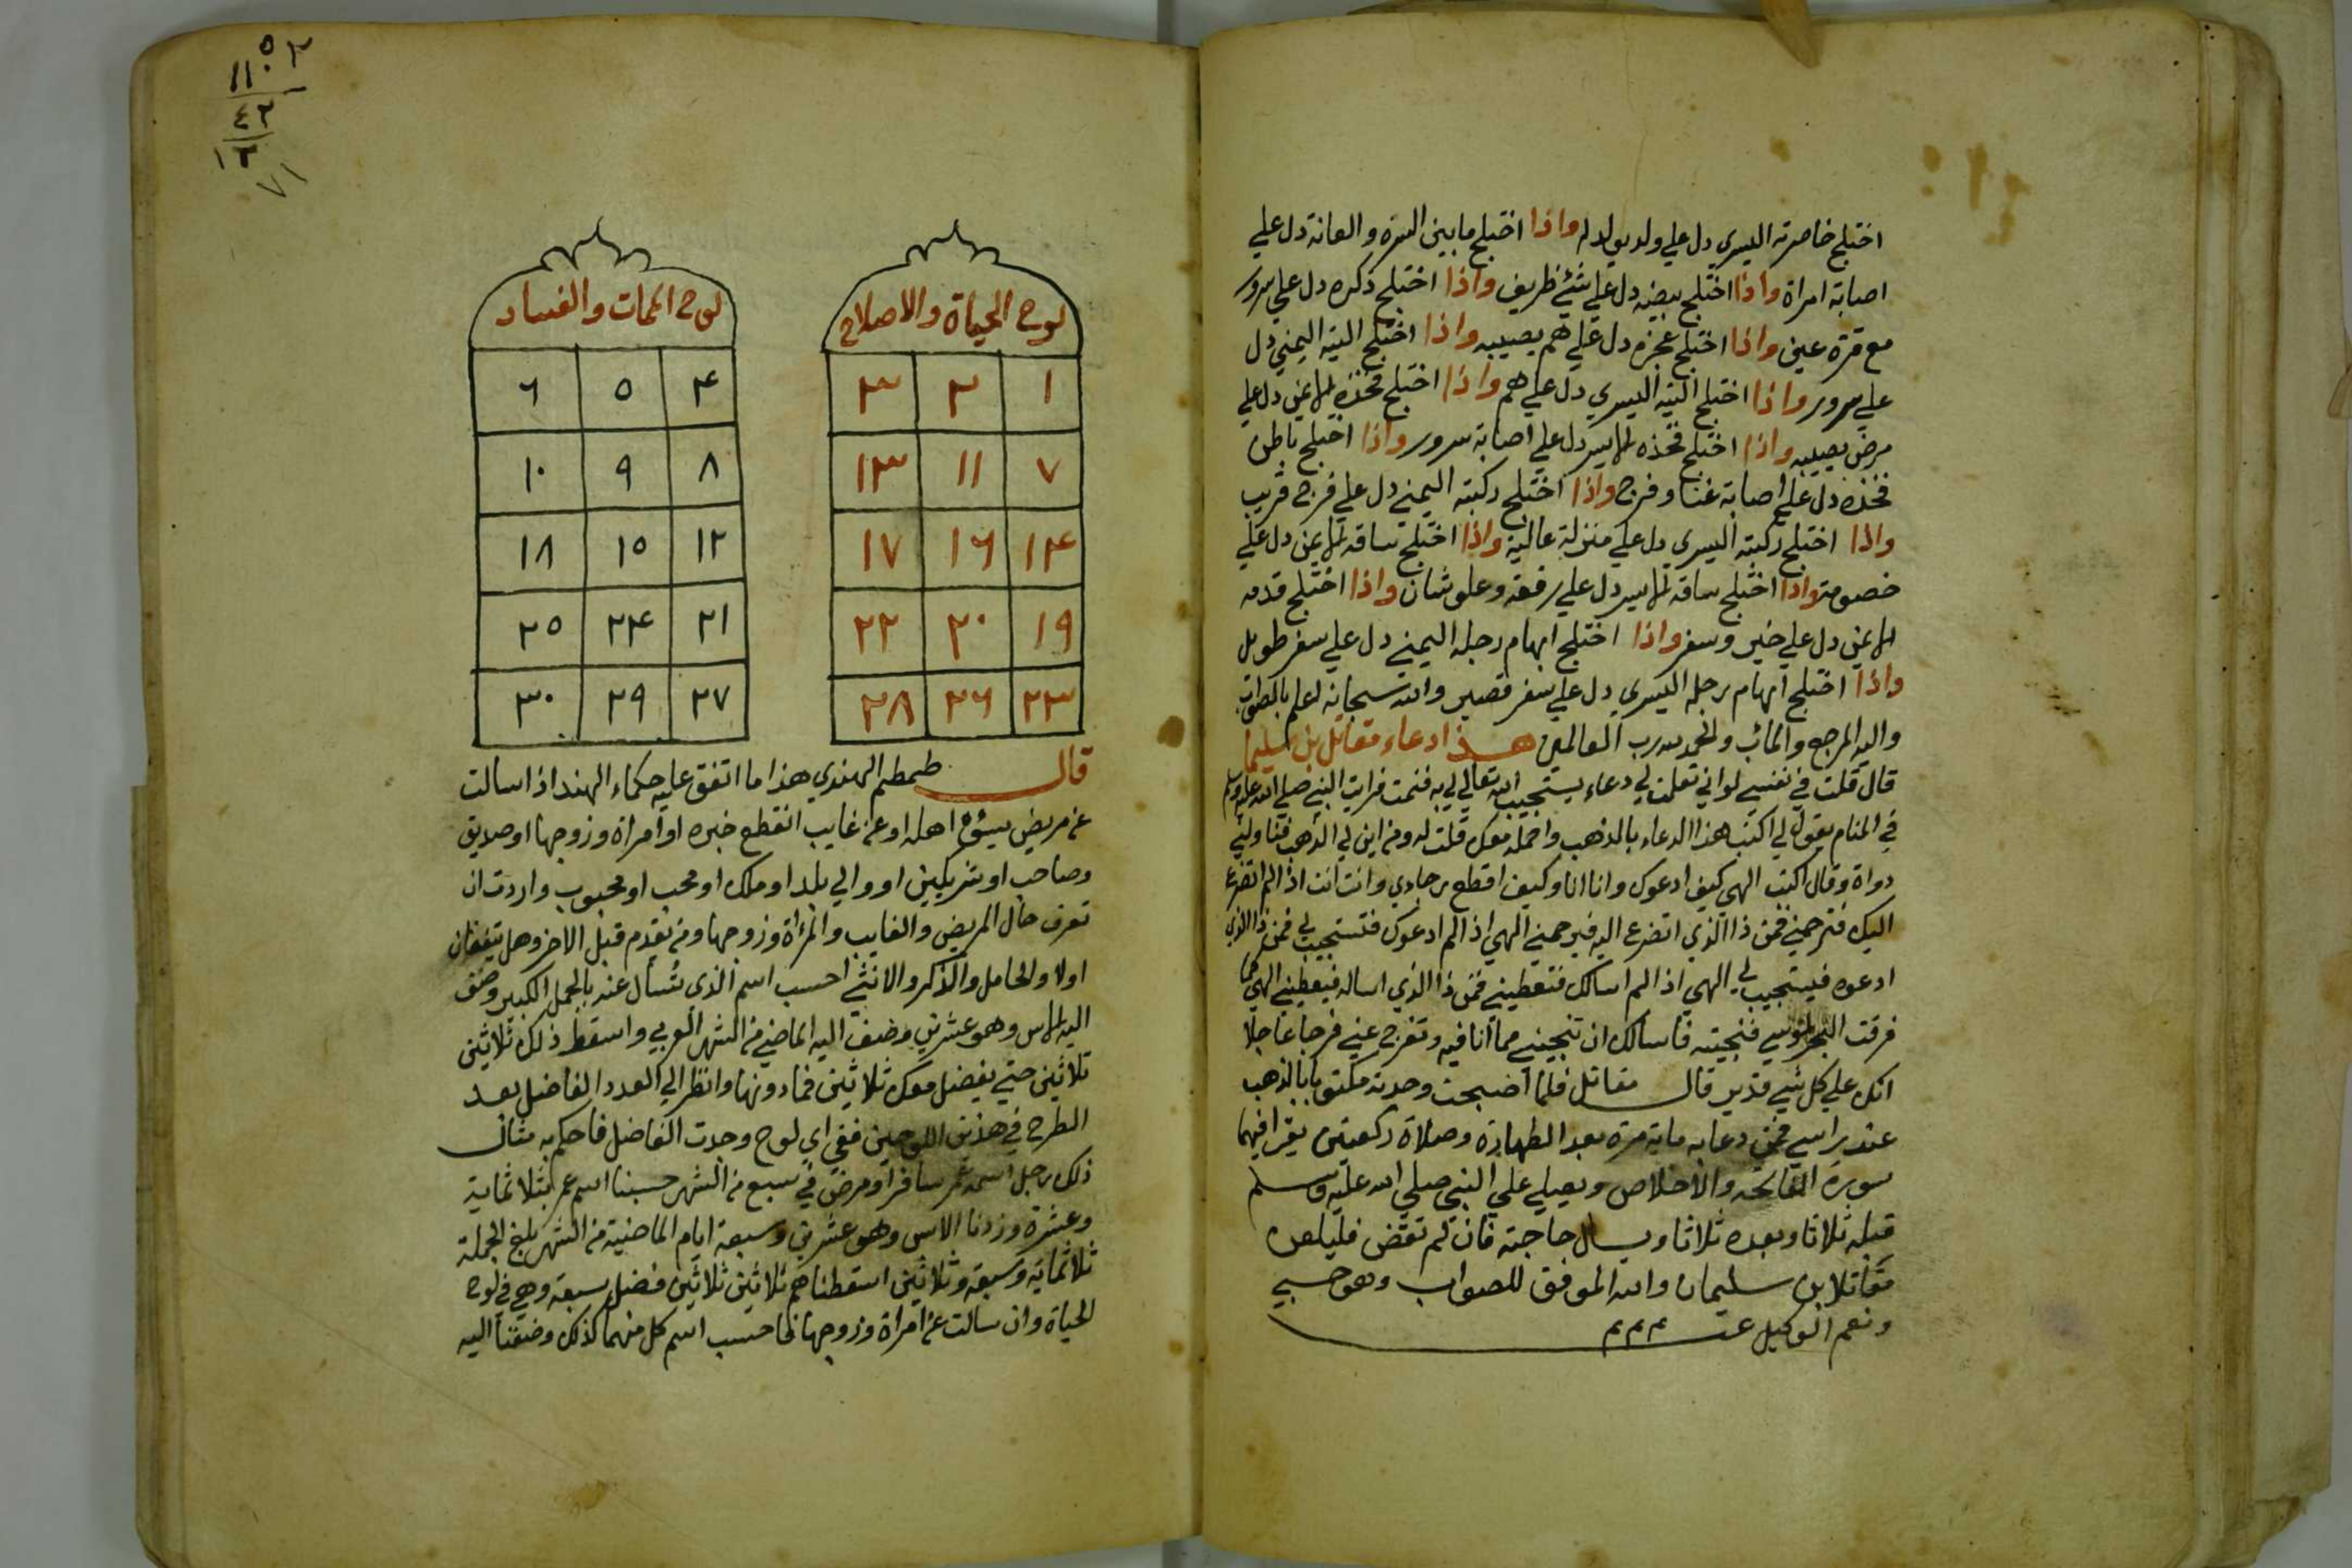 اختلج خاصرته اليسري دل علي ولد يولد له واذا اختلج ما بين السرة والعانة دل علي
اصابة امراة واذا اختلج بيضه دل علي شئ ظريف واذا اختلج ذكره دل علي سرور
مع قرة عين واذا اختلج عجزه دل علي هم يصيبه واذا اختلج اليته اليمني دل
علي سرور واذا اختلج اليته اليسري دل علي هم واذا اختلج فخذه الايمن دل علي
مرض يصيبه واذا اختلج فخذه الايسر دل علي اصابة سرور واذا اختلج باطن
فخذه دل علي اصابة غنا وفرج واذا اختلج ركبته اليمني دل علي فرج قريب
واذا اختلج ركبته اليسري دل علي منزلة عالية واذا اختلج ساقه الايمن دل علي
خصومة واذا اختلج ساقه الايسر دل علي رفعة وعلو شان واذا اختلج قدمه
الايمن دل علي خير وسفر واذا اختلج ابهام رجله اليمني دل علي سفر طويل
واذا اختلج ابهام رجله اليسري دل علي سفر قصير والله سبحانه اعلم بالصواب
واليه المرجع والمائب والحمد لله رب العالمين هذا دعاء مقاتل بن سليما
قال قلت في نفسي لو اني تعلمت لي دعاء يستجيب الله تعالي لي به فنمت فرايت النبي صلي الله عليه وسلم
في المنام يقول لي اكتب هذا الدعاء بالذهب واحمله معك قلت له ومن اين لي الذهب فناولني
دواة وقال اكتب الهي كيف ادعوك وانا انا وكيف اقطع رجاءي وانت انت اذا لم اتضرع
اليك فترحمني فمن ذا الذي اتضرع اليه فيرحمني الهي اذا لم ادعوك فتستجيب لي فمن ذا الذي
ادعوه فيستجيب لي الهي اذا لم اسالك فتعطيني فمن ذا الذي اساله فيعطيني الهي كما
فرقت البحر لموسي فنجيته فاسالك ان تنجيني مما انا فيه وتفرج عني فرجا عاجلا
انك علي كل شي قدير قال مقاتل فلما اصبحت وجدته مكتوبا بالذهب
عند راسي فمن دعا به ماية مرة بعد الطهارة وصلاة ركعتين يقرا فيهما
سورة الفاتحه والاخلاص ويصلي علي النبي صلي الله عليه وسلم
قبله ثلاثا وبعده ثلاثا ويسال حاجته فان لم تقض فليلعن
مقاتلا بن سليمان والله الموفق للصواب وهو حسبي
ونعم الوكيل تمت م م م
لوح الحياة والاصلاح
١ ٢ ٣
٧ ١١ ١٣
١۴ ١٦ ١٧
١٩ ٢٠ ٢٢
٢٣ ٢٦ ٢٨
لوح الممات والفساد
۴ ٥ ٦
٨ ٩ ١٠
١٢ ١٥ ١٨
٢١ ٢۴ ٢٥
٢٧ ٢٩ ٣٠
قال طمطم الهندي هذا ما اتفق عليه حكماء الهند اذا سالت
عن مريض يسؤ اهله او عن غايب انقطع خبره او امراة وزوجها او صديق
وصاحب او شريكين او والي بلد او ملك او محب او محبوب واردت ان
تعرف حال المريض والغايب والمرأة وزوجها ومن يقدم قبل الاخر وهل يتفقان
اولا والحامل والذكر والانثي احسب اسم الذي تسأل عنه بالجمل الكبير وضف
اليه الاس وهو عشرين وضف اليه الماضي من الشهر العربي واسقط ذلك ثلاثين
ثلاثين حتي يفضل معك ثلاثين فما دونها وانظر الي العدد الفاضل بعد
الطرح في هذين اللوحين ففي اي لوح وجدت الفاضل فاحكم به مثال
ذلك رجل اسمه عمر سافر او مرض في سبع من الشهر حسبنا اسم عمر بثلاثماية
وعشرة وزدنا الاس وهو عشرين وسبعة ايام الماضية من الشهر بلغ الجملة
ثلاثماية وسبعة وثلاثين اسقطناهم ثلاثين ثلاثين فضل سبعة وهي في لوح
الحياة وان سالت عن امراة وزوجها فاحسب اسم كل منهما كذلك وضفنا اليه